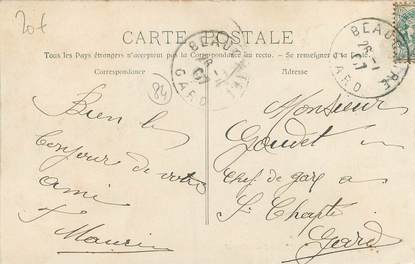 20f
CARTE POSTALE
Tous les Pays étrangers n'acceptent pas la Correspondance au recto. - Se renseigner à la
Correspondance
Adresse
BEAUCAIRE
GARD
BEAUCAIRE
GARD
84
Bien le
bonjour de votre
ami
Monsieur
Goudet
chef de gare a
St Chapte
Gard